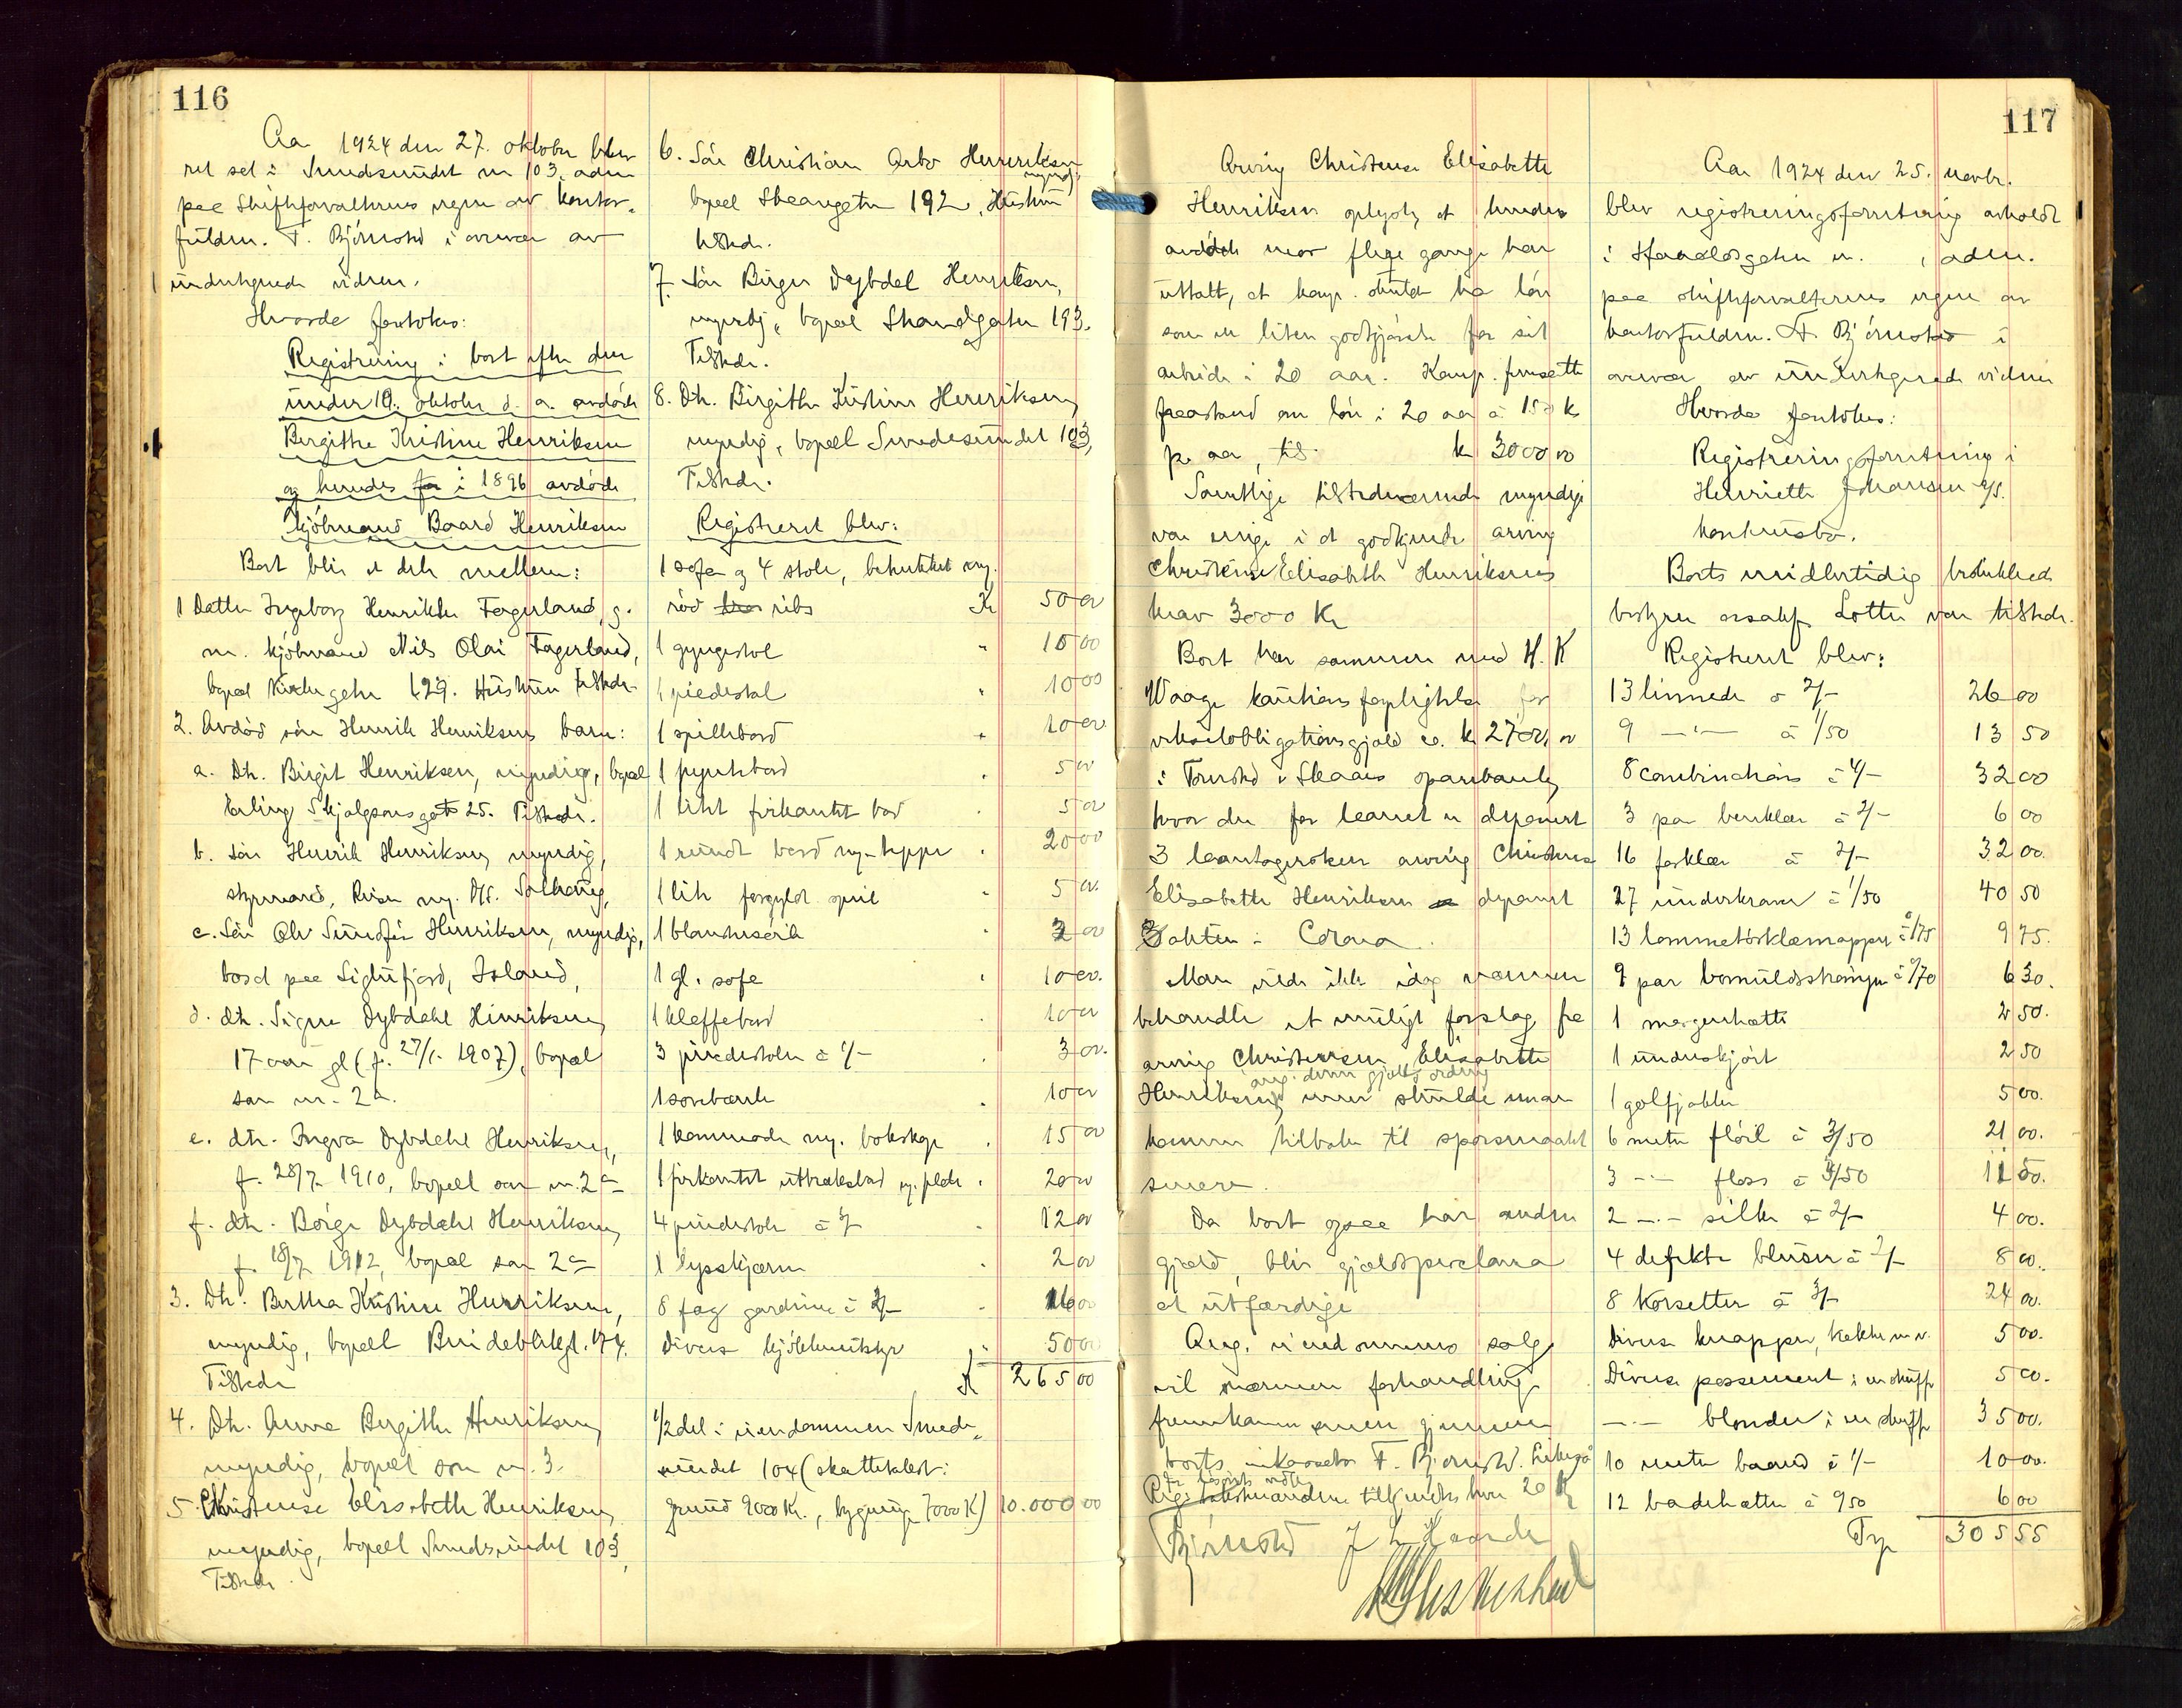 116
Aa 1924 den 27. oktober blev
ret sat i Smedsundet nr 103. adm
paa skifteforvalterens vegne av kontor-
fuldm. F. Björnstad i overvær av
undertegnede vidner.
Hvorda foretokes:
Registrering i bort efter den
under 19. oktober d. a. avdøde
Bergithe Kristine Henriksen
og hendes i 1896 avdøde
kjöbmand Baard Henriksen
Bort blir at dele mellem:
1 Datter Ingeborg Henrikke Fagerland, g.
m. kjöbmand Nils Olai Fagerland,
bopæl Kirkegaten 129. Hustruen tilstede.
2. Avdöd sön Henrik Henriksens barn:
a. Dtr. Birgit Henriksen, myndig, bopæl
Erling Skjalgsonsgat 25. Tilstede.
b. Sön Henrik Henriksen, myndig,
styrmand, Reiser m. D/S. Solhaug,
c. Sön Olv Sundför Henriksen, myndig,
bosat paa Siglufjord, Island,
d. dtr. Signe Dybdahl Henriksen,
17 aar gl (f. 27/1. 1907), bopæl
som nr. 2a.
e. dtr. Ingva Dybdahl Henriksen,
f. 28/7 1910, bopæl som nr. 2a
f. dtr. Borge Dybdahl Henriksen,
f. 18/7 1912, bopæl som 2a
3. Dtr. Bertha Kristine Henriksen,
myndig, bopæl 174.
Tilstede
4. Dtr. Anna Bergithe Henriksen,
myndig, bopæl som nr. 3.
5. Christense Elisabeth Henriksen
myndig, bopæl Smedsundet 103,
Tilstede.
6. Sön Christian Arbo Henriksen
myndig,
bopæl Skaregaten 192, Hustruen
tilstede.
7. Sön Birger Dybdal Henriksen,
myndig, bopæl Strandgaten 193.
Tilstede.
8. Dtr. Birgithe Kristine Henriksen,
myndig, bopæl Smedesundet 103,
Tilstede.
Registreret blev:
1 sofa og 4 stole, betrukket m.
röd ribs Kr 50 00
1 gyngestol " 10 00
1 piedestal " 10 00
1 spillebord " 10 00
1 pyntebord " 5 00
1 litet firkantet bord " 5 00
1 rundt bord m. teppe " 20 00
1 lite forgyldt speil " 5 00
1 blomstersöile " 2 00
1 gl. sofa " 10 00.
1 klaffebord " 10 00
3 pindestoler à 1/- " 3 00.
1 sovebænk " 10 00
1 kommode m. bokskap " 15 00
1 firkantet uttræksbord m. plate " 20 00
4 pindestole à 3/- " 12 00
1 lysskjærm " 2 00
8 fag gardiner à 2/- " 16 00
Divers kjökkenutstyr " 50 00
Kr 265 00
1/2 del i eiendommen Smed-
sundet 104 (skattetakst:
grund 9000 Kr., bygning 7000 K) 10.000 00
117
Arving Christense Elisabeth
Henriksen oplyste, at hendes
avdøde mor flere gange har
uttalt, at komp. skulde ha lön
som en liten godtgjörelse for sit
arbeide i 20 aar. Komp. fremsatte
paastand om lön i 20 aar à 150 kr
pr. aar, tils. kr 3000 00
Samtlige tilstedeværende myndige
var enige i at godkjende arving
Christense Elisabeth Henriksens
krav 3000 Kr
Bort har sammen med H. K
Waage kautionsforpligtelse for
vekselobligationsgjæld ca. kr 2700, 00
i Torvestad & Skaare sparebank,
hvor der for laanet er deponert
3
Elisabeth Henriksen deponert
3 aktier i Corona.
Man vilde ikke idag nærmere
behandle et muligt forslag fra
arving Christensen Elisabeth
ang. denne gjælds ordning
Henriksen, men skulde man
komme tilbake til spörsmaalet
senere.
Da bort ogsaa har anden
gjæld, blir gjældsproclama
at utfærdige
Ang. eiendommens salg
vil nærmere forhandling
fremkomme gjennem
borts inkassator F. Bjørnstad.
tilkjendes hver 20 Kr
Björnstad J L Haarde
Aar 1924 den 25. novbr.
blev registreringsforretning avholdt
i Haraldsgaten nr. , adm.
paa skifteforvalterens vegne av
kontorfuldm. F. Björnstad i
overvær av undertegnede vidner
Hvorda foretokes:
Registreringsforretning i
Henriette Johansen A/S.
konkursbo.
Borts midlertidig beskikkede
bestyrer orsakf. Lotte var tilstede.
Registreret blev:
13 linnede à 2/- 26 00
9 —"— à 1/50 13 50
8 combinations à 4/- 32 00
3 par benklær à 2/- 6 00
16 forklær à 2/- 32 00.
27 underkraver à 1/50 40 50
13 lommetörklæmapper à 0/75 9 75.
9 par bomuldsströmper à 0/70 6 30.
1 morgenhætte 2 50.
1 underskjört 2 50
1 golfjakke 5 00.
6 meter flöil à 3/50 21 00.
3 —"— floss à 3/50 11 50.
2 —"— silke à 2/- 4 00.
4 defekte bluser à 2/- 8 00.
8 Korsetter à 3/- 24 00.
Diverse knapper, kokker m.v. 5 00.
Diverse possement i en skuff 5 00.
—"— blonder i en skuff 35 00.
10 meter baand à 1/- 10 00.
12 badehætter à 0/50 6 00
Trp 305 55